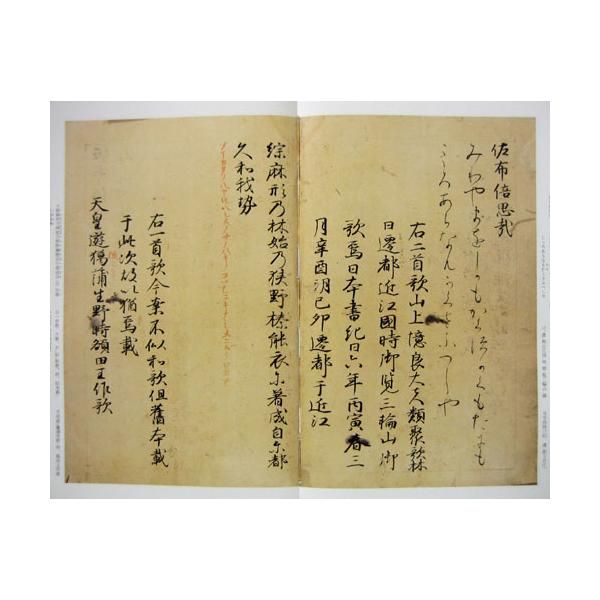 佐布倍思哉
みわやまをしかもかくすかくもたにも
こころあらなんかくさふへしや
右二首歌山上憶良大夫類聚歌林
曰遷都近江國時御覧三輪山御
歌焉日本書紀曰六年丙寅春三
月辛酉朔己卯遷都于近江
綜麻形乃林始乃狭野榛能衣尓著成目尓都
久和我勢
右一首歌今案不似和歌但舊本載
于此次故以猶焉載
天皇遊猟蒲生野時額田王作歌